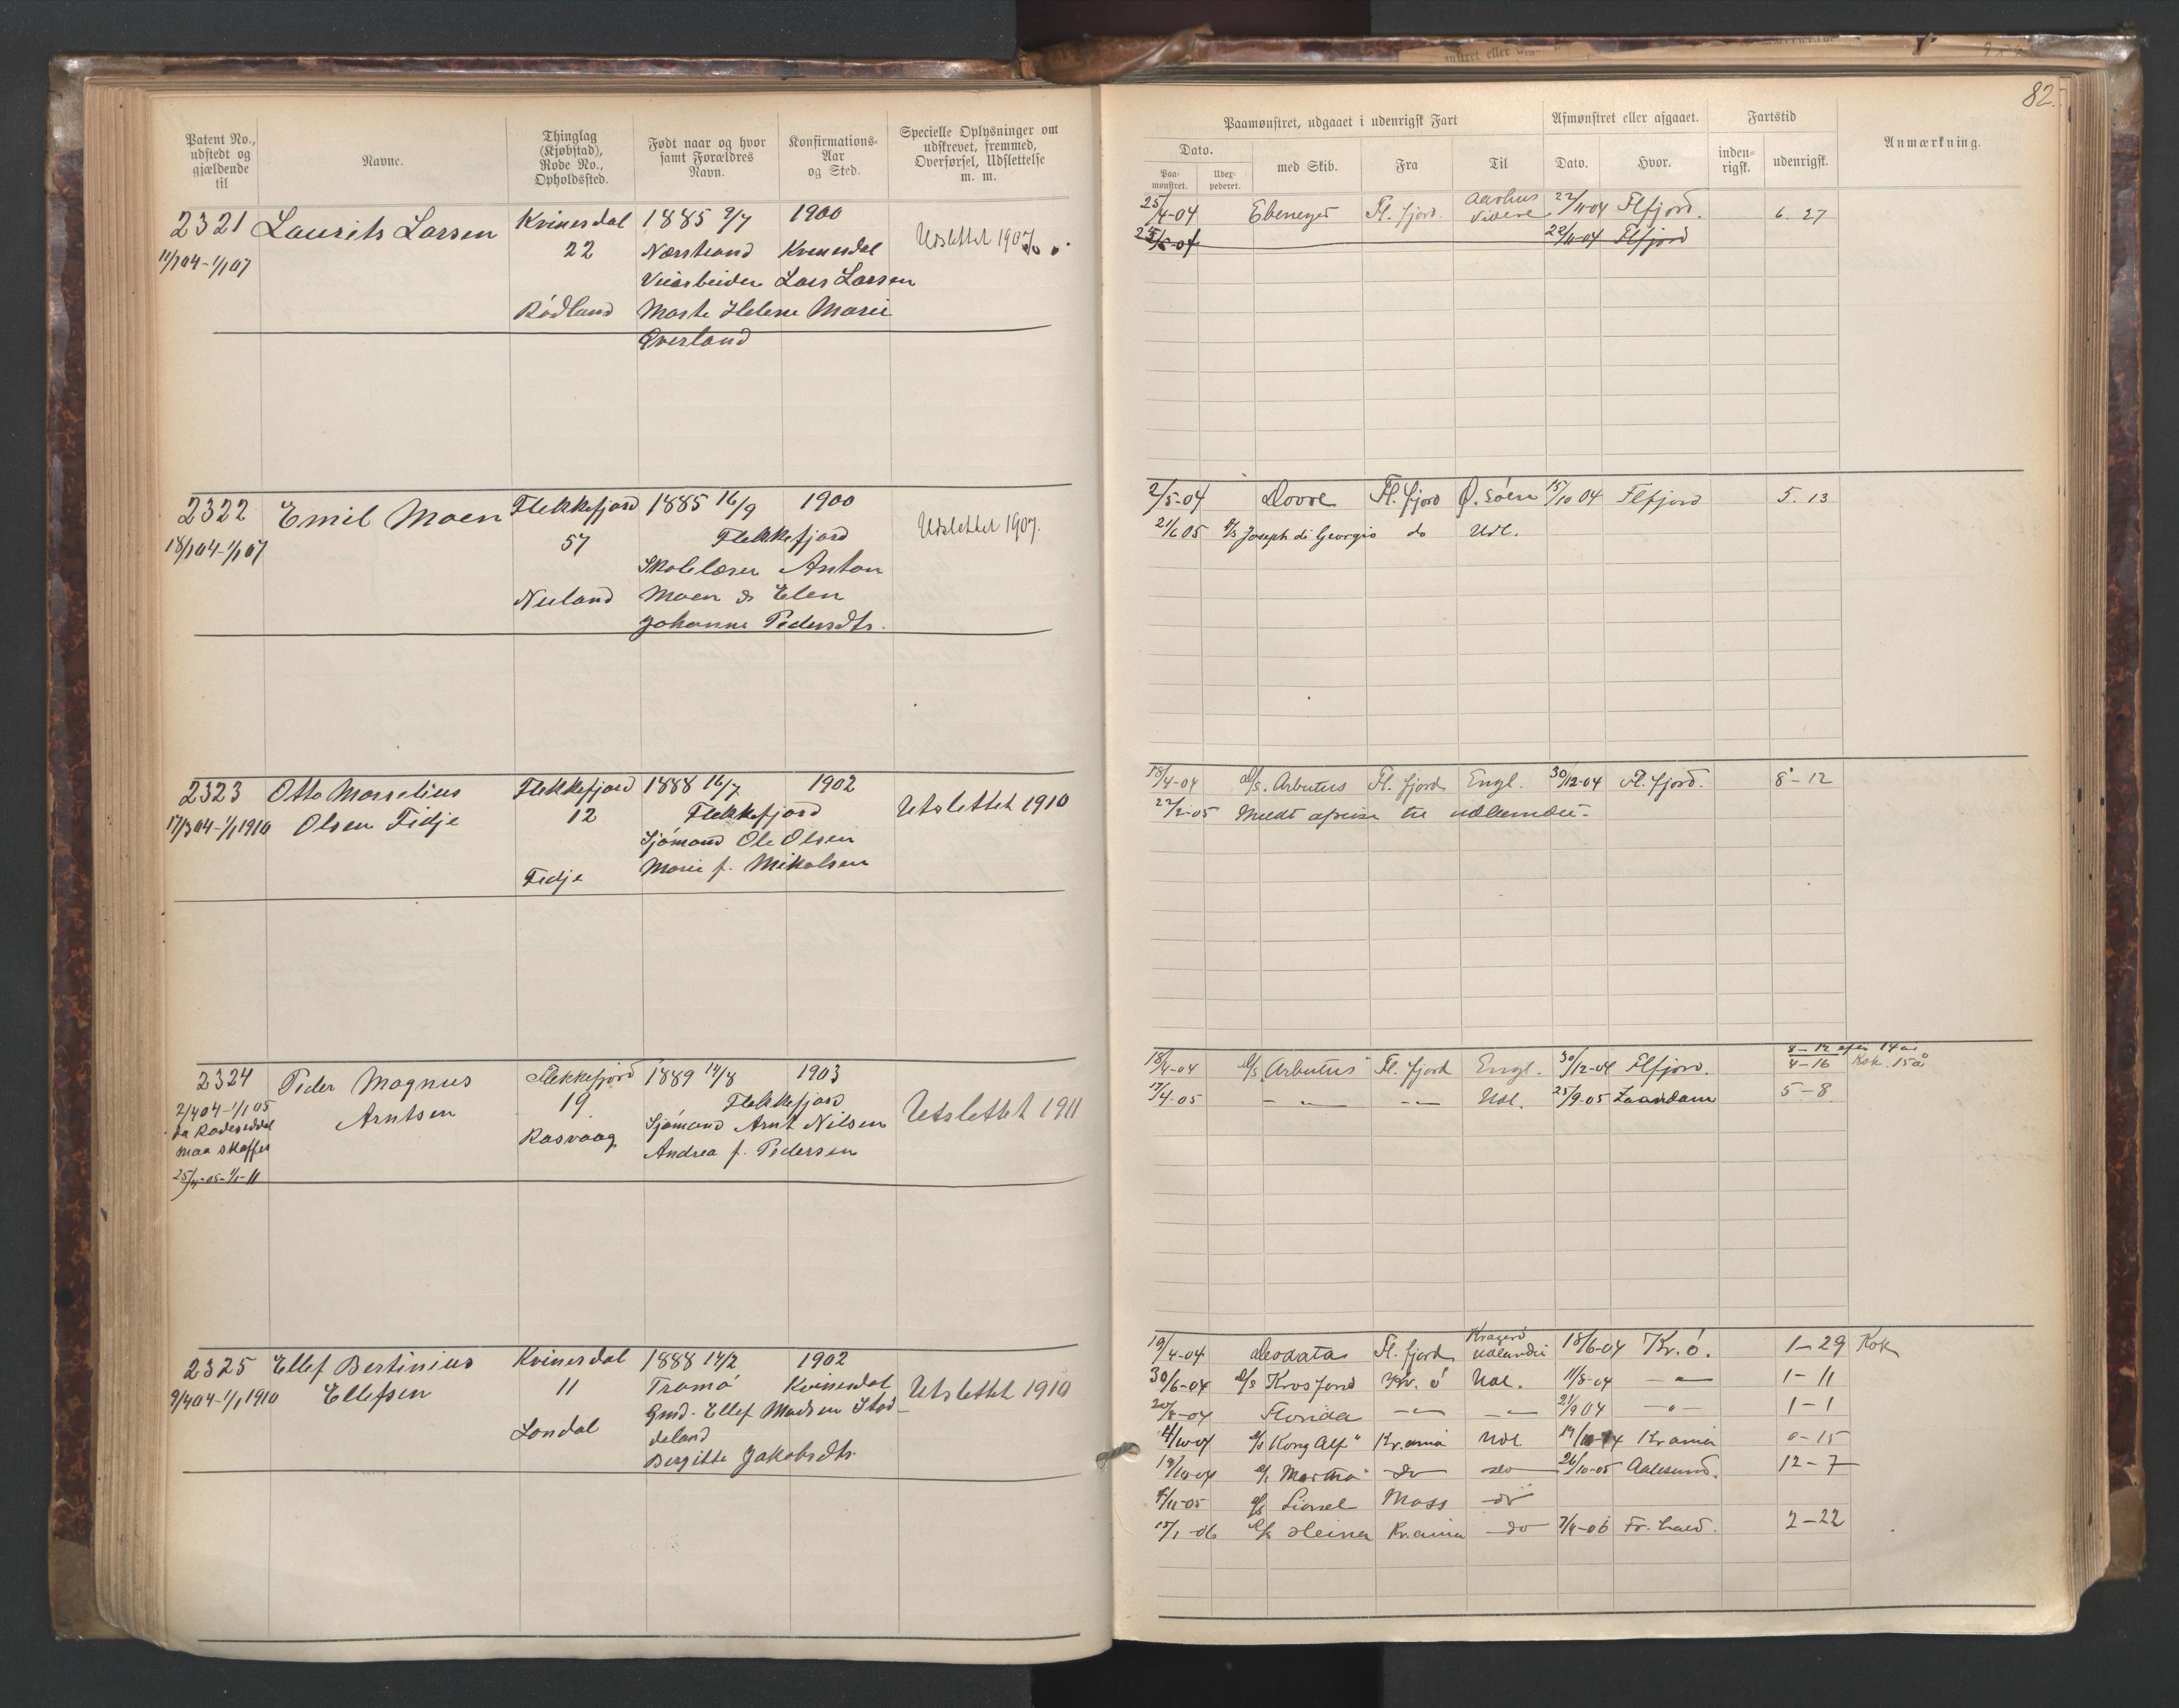 82.
Patent No., udstedt og gjældende til
Navne.
Thinglag (Kjøbstad), Rode No., Opholdssted.
Født naar og hvor samt Forældres Navn.
Konfirmations-Aar og Sted.
Specielle Oplysninger om udskrevet, fremmed, Overførsel, Udslettelse m. m.
Paamønstret, udgaaet i udenrigsk Fart
Afmønstret eller afgaaet.
Fartstid
Anmærkning.
Dato.
med Skib.
Fra
Til
Dato.
Hvor.
inden-rigsk.
udenrigsk.
Paa-mønstret.
Udex-pederet.
2321 Laurits Larsen Kvinesdal 1885 9/7 1900
11/1 04-1/1 07 22 Nærstrand Kvinesdal Udslettet 1907
Veiarbeider Lars Larsen
Rødland Marte Helene Marie
Øverland
25/4-04 Ebenezer Fl. fjord Aarhus Videre 22/11-04 Flfjord. 6. 27
22/11-04 Flfjord
2322 Emil Moen Flekkefjord 1885 16/9 1900
18/1 04-1/1 07 57 Flekkefjord Udslettet 1907.
Skolelærer Anton
Nuland Moen & Elen
Johanne Pedersdtr.
2/5-04 Dovre Fl. fjord Ø. søen 15/10 04 Flfjord 5. 13
21/6 05 D/S Joseph di Georgio do Udl.
2323 Otto Marselius Flekkefjord 1888 16/7 1902
17/3 04-1/1 1910 Olsen Fidje 12 Flekkefjord Utslettet 1910
Sjømand Ole Olsen
Fidje Marie f. Mikalsen
18/4-04 D/S. Arbutus Fl. fjord Engl. 30/12-04 Fl. fjord. 8-12
22/2-05 Meldt afreise til udlandet.
2324 Peder Magnus Flekkefjord 1889 14/8 1903
2/4 04-1/1 05 Arntsen 19 Flekkefjord
da Rodeseddel Rasvaag Sjømand Arnt Nilsen Utslettet 1911
maa skaffes Andrea f. Pedersen
25/4-05-1/1-11
18/4-04 D/S Arbutus Fl. fjord Engl. 30/12-04 Flfjord. 8-12 efter 14 aar
4-16 Kok 15 a
17/4-05 - " - - " - Udl. 25/9-05 Zaandam 5-8
2325 Ellef Bertinius Kvinesdal 1888 14/2 1902
9/4 04-1/1 1910 Ellefsen 11 Tromø Kvinesdal Utslettet 1910
Gmd. Ellef Madsen Stad-
Londal deland
Bergitte Jakobsdtr.
19/4-04 Deodata Fl. fjord Kragerø udlandet 18/6-04 Kr. ø. 1-29 Kok
30/6-04 D/S Krosfond Kr. ø Udl. 11/8-04 - " - 1-11
20/8-04 Florida - " - - " - 21/9 04 - " - 1-1
4/10-04 D/S Kong Alf" Kr.ania Udl 19/10-04 Kr ania 0-15
19/10-04 D/S Martha" do do 26/10-05 Aalesund. 12-7
4/11-05 D/S Lionel Moss do
15/1-06 D/S Heina Kr.ania do 7/4-06 Fr. hald. 2-22